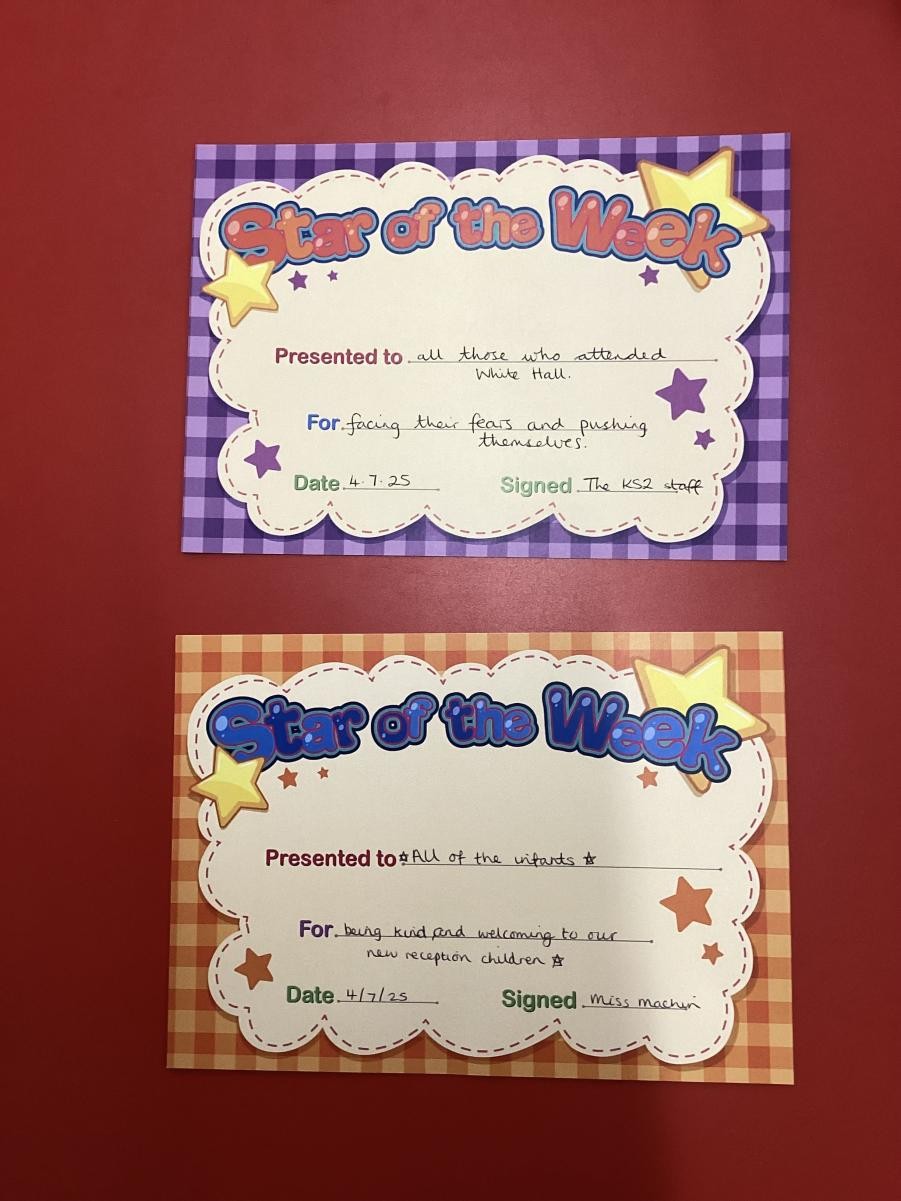 Star of the Week
Presented to all those who attended
White Hall.
For facing their fears and pushing
themselves.
Date 4.7.25 Signed The KS2 staff
Star of the Week
Presented to ☆All of the infants ☆
For being kind, and welcoming to our
new reception children ☆
Date 4/7/25 Signed Miss Machin